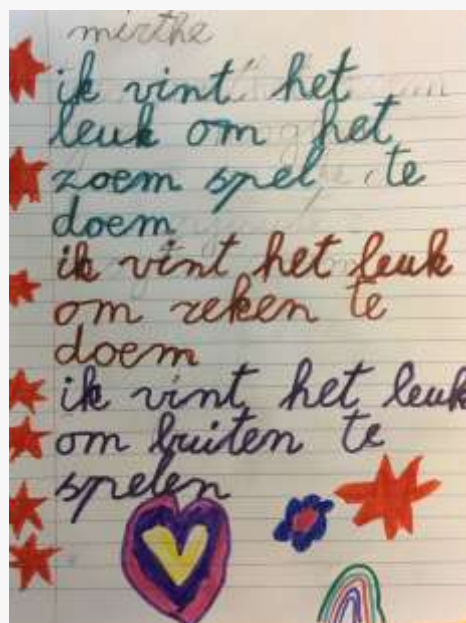 mirthe
ik vint het
leuk om het
zoem spel te
doem
ik vint het leuk
om reken te
doem
ik vint het leuk
om buiten te
spelen